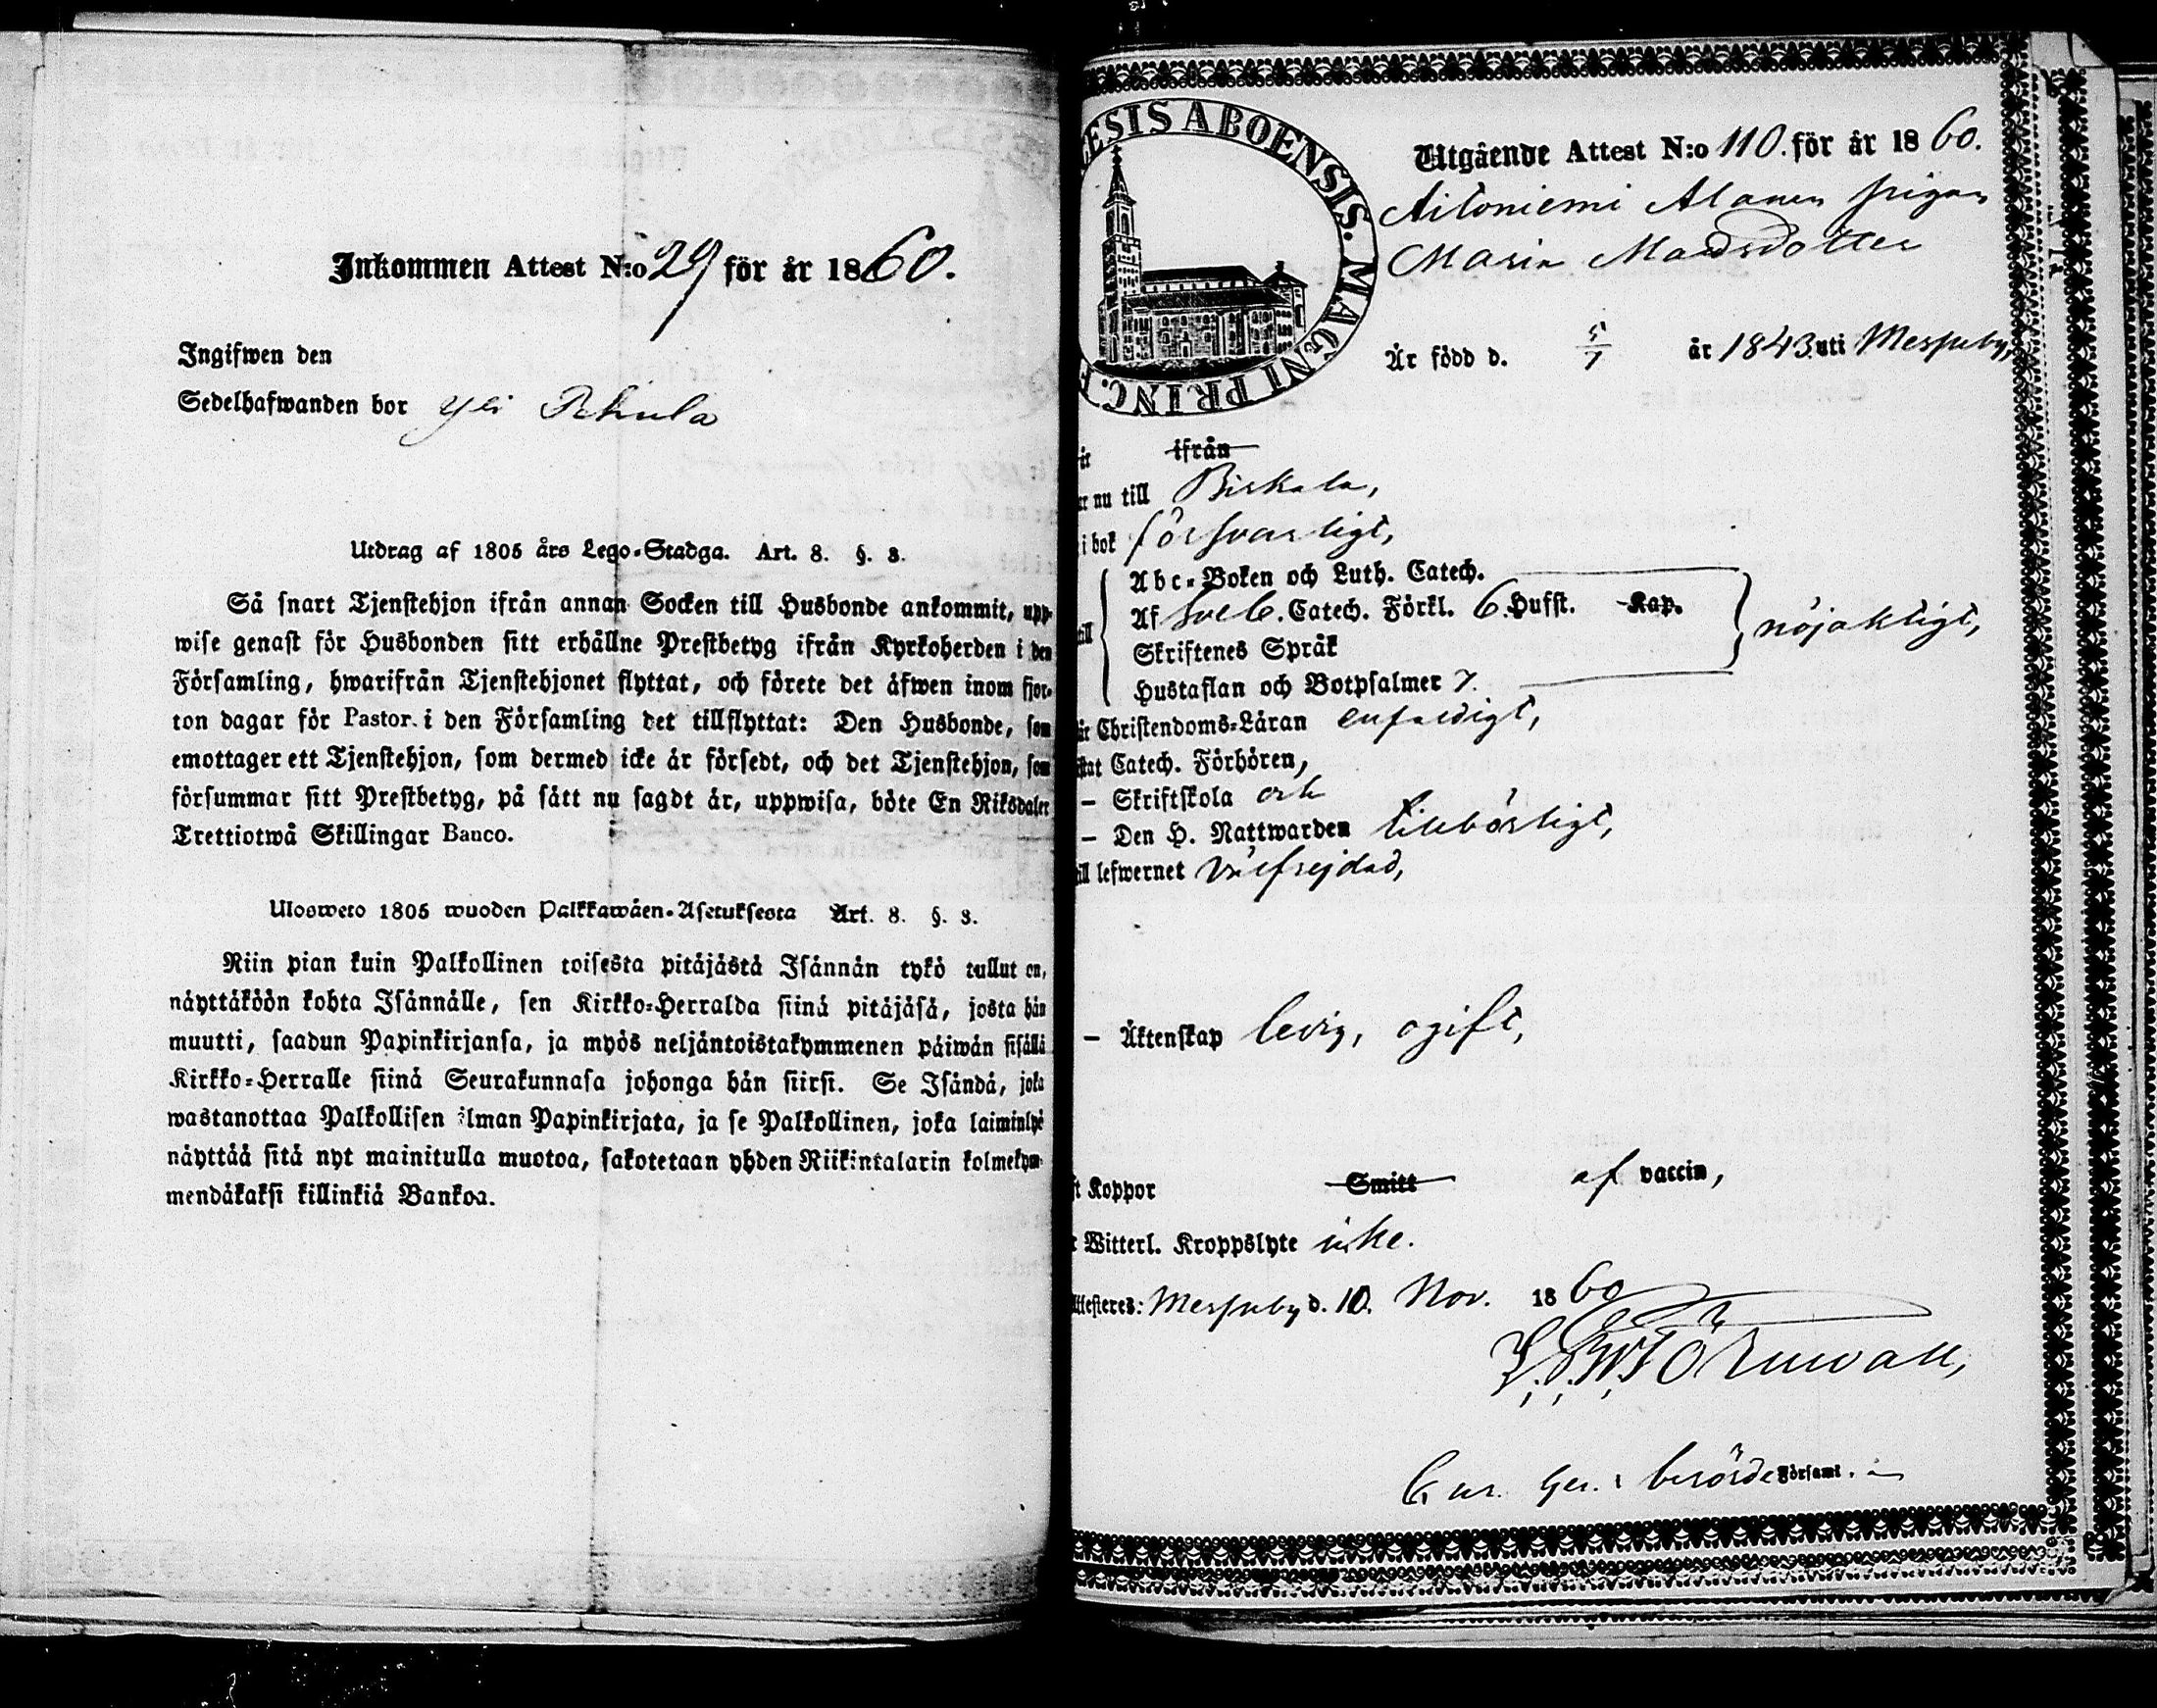 Inkommen Attest N:o 29 för år 1860.
Ingifwen den
Sedelhafwanden bor Yli Pehula
Utdrag af 1805 års Lego-Stadga. Art. 8. §. 3.
Så snart Tjenstehjon ifrån annan Socken till Husbonde ankommit, upp-
wise genast för Husbonden sitt erhållne Prestbetyg ifrån Kyrkoherden i den
Församling, hwarifrån Tjenstehjonet flyttat, och förete det äfwen inom fjor-
ton dagar för Pastor i den Församling det tillflyttat: Den Husbonde, som
emottager ett Tjenstehjon, som dermed icke är försedt, och det Tjenstehjon, som
försummar sitt Prestbetyg, på sätt nu sagdt är, uppwisa, böte En Riksdaler
Trettiotwå Skillingar Banco.
Ulosweto 1805 wuoden Palkkawäen-Asetuksesta Art. 8. §. 3.
Niin pian kuin Palkollinen toisesta pitäjästä Isännän tykö tullut on,
näyttäköön kohta Isännälle, sen Kirkko-Herralda siinä pitäjäsä, josta hän
muutti, saadun Papinkirjansa, ja myös neljäntoistakymmenen päiwän sisällä
Kirkko-Herralle siinä Seurakunnasa johonga hän siirsi. Se Isändä, joka
wastanottaa Palkollisen ilman Papinkirjata, ja se Palkollinen, joka laiminlyö
näyttää sitä nyt mainitulla muotoa, sakotetaan yhden Riikintalarin kolmekym-
mendäkaksi killinkiä Bankoa.
ESIS ABOENSIS. MAGNI PRINC. F
Utgående Attest N:o 110. för år 1860.
Aitoniemi Alanen pigan
Maria Madsdotter
Är född d. 5/7 år 1843 uti Messuby,
är ifrån
er nu till Birkala,
i bok försvarligt,
Abc-Boken och Luth. Catech.
till Af Sveb. Catech. Förkl. 6. Hufst. Kap. nöjaktigt,
Skriftenes Språk
Hustaflan och Botpsalmer 7.
år Christendoms-Läran enfaldigt,
stat Catech. Förhören,
– Skriftskola och
– Den H. Nattwarden tillbörligt,
ill lefwernet välfrejdad,
– Äktenskap ledig, ogift,
ft Koppor Smitt af vaccin,
r Witterl. Kroppslyte icke.
ttesteres: Messuby d. 10. Nov. 1860
Örnwall,
församl.